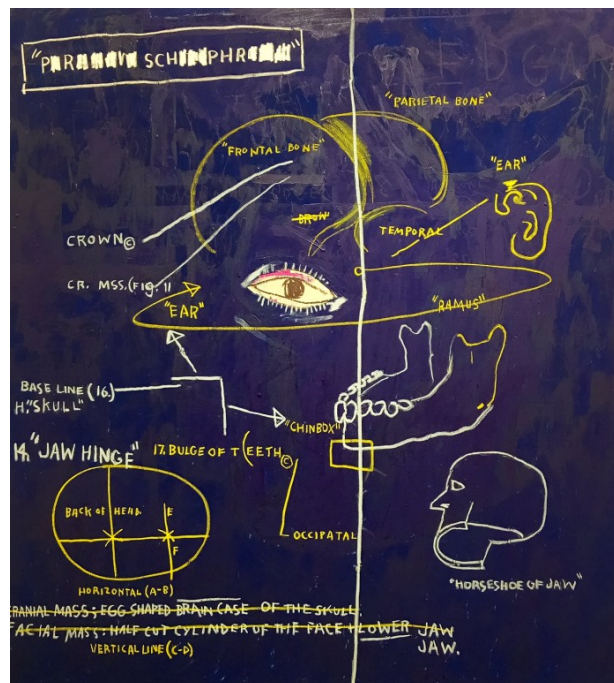 SCHIZOPHRENIA"
EDGA
"PARIETAL BONE"
"FRONTAL BONE"
"EAR"
BROW
TEMPORAL
CROWN©
CR. MSS. (FIG. 1)
"EAR"
"RAMUS"
BASE LINE (16.)
H."SKULL"
"CHINBOX"
14. "JAW HINGE"
17. BULGE OF TEETH©
BACK OF HEAD
E
F
OCCIPATAL
HORIZONTAL (A-B)
"HORSESHOE OF JAW"
CRANIAL MASS; EGG SHAPED BRAIN CASE OF THE SKULL.
FACIAL MASS: HALF CUT CYLINDER OF THE FACE + LOWER JAW
JAW.
VERTICAL LINE (C-D)